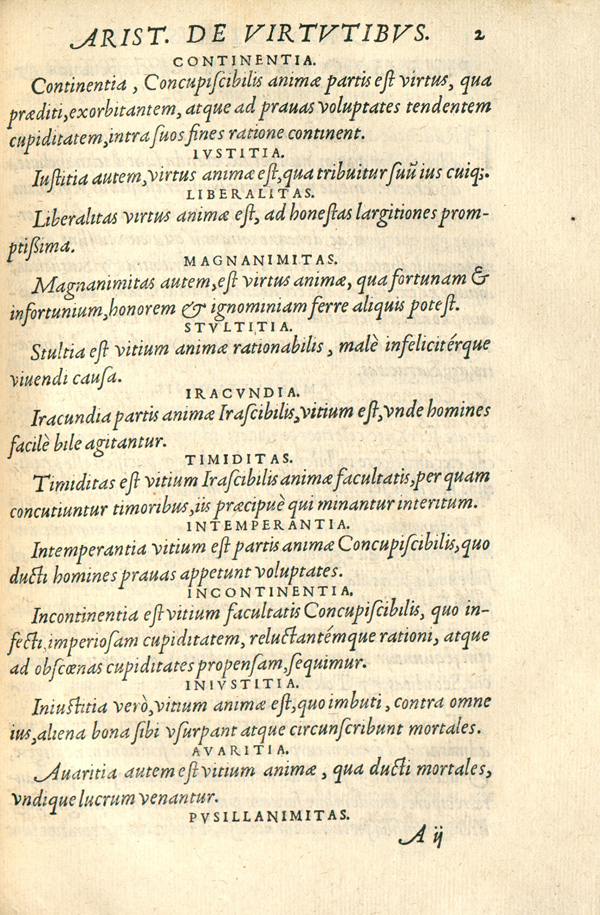 ARIST. DE VIRTVTIBVS. 2
CONTINENTIA.
Continentia, Concupiſcibilis animæ partis eſt virtus, qua
præditi, exorbitantem, atque ad prauas voluptates tendentem
cupiditatem, intra ſuos fines ratione continent.
IVSTITIA.
Iuſtitia autem, virtus animæ eſt, qua tribuitur ſuũ ius cuiq;.
LIBERALITAS.
Liberalitas virtus animæ eſt, ad honeſtas largitiones prom-
ptißima.
MAGNANIMITAS.
Magnanimitas autem, eſt virtus animæ, qua fortunam &
infortunium, honorem & ignominiam ferre aliquis poteſt.
STVLTITIA.
Stultia eſt vitium animæ rationabilis, malè infelicitérque
viuendi cauſa.
IRACVNDIA.
Iracundia partis animæ Iraſcibilis, vitium eſt, vnde homines
facilè bile agitantur.
TIMIDITAS.
Timiditas eſt vitium Iraſcibilis animæ facultatis, per quam
concutiuntur timoribus, iis præcipuè qui minantur interitum.
INTEMPERANTIA.
Intemperantia vitium eſt partis animæ Concupiſcibilis, quo
ducti homines prauas appetunt voluptates.
INCONTINENTIA.
Incontinentia eſt vitium facultatis Concupiſcibilis, quo in-
fecti, imperioſam cupiditatem, reluctantémque rationi, atque
ad obſcœnas cupiditates propenſam, ſequimur.
INIVSTITIA.
Iniuſtitia verò, vitium animæ eſt, quo imbuti, contra omne
ius, aliena bona ſibi vſurpant atque circunſcribunt mortales.
AVARITIA.
Auaritia autem eſt vitium animæ, qua ducti mortales,
vndique lucrum venantur.
PVSILLANIMITAS.
A ij